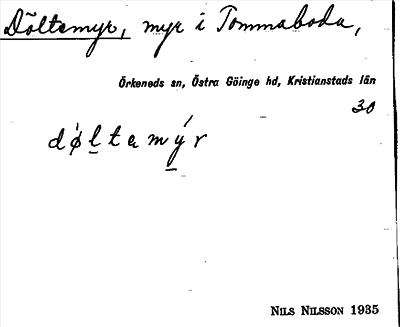 Döltemyr, myr i Tommaboda,
Örkeneds sn, Östra Göinge hd, Kristianstads län
30
dø̀l̲temý̲r
NILS NILSSON 1935